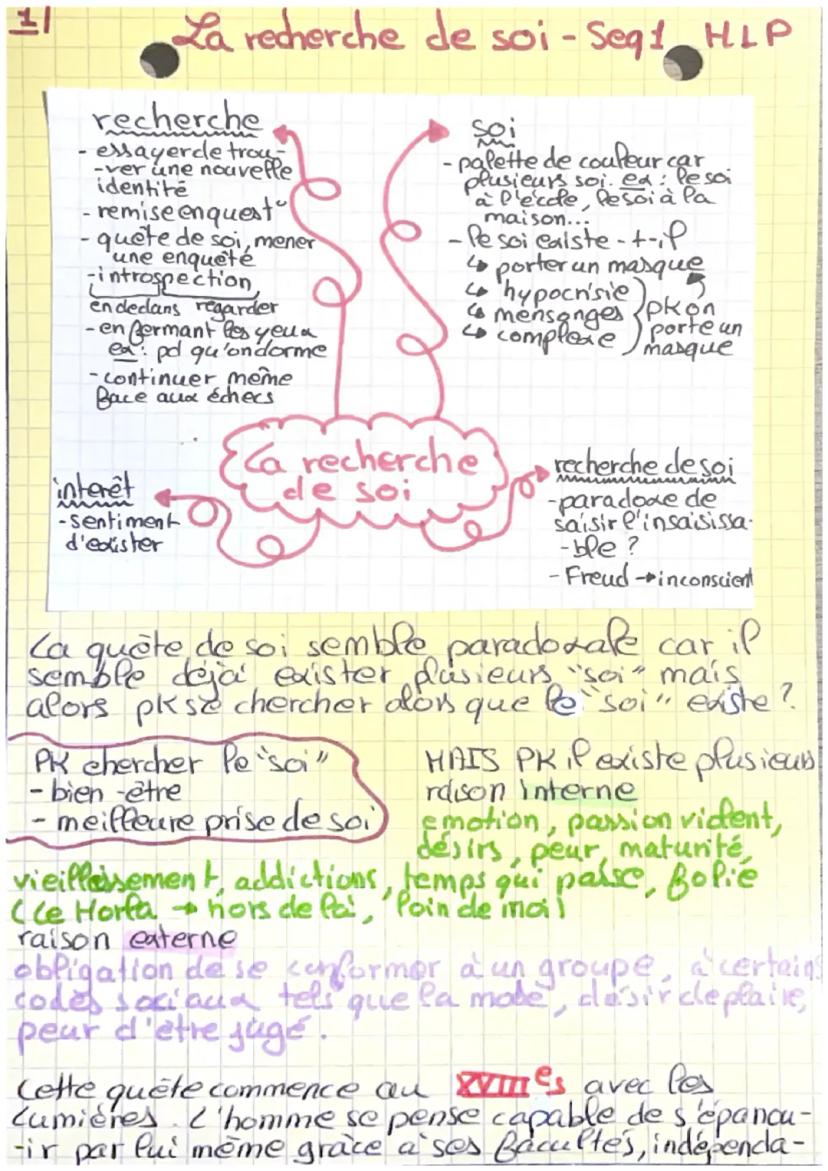 1/
La recherche de soi - Seq1 HLP
recherche
- essayer de trou-
-ver une nouvelle
identité
- remise en quest°
- quête de soi, mener
une enquête
- introspection
en dedans regarder
- en fermant les yeux
ex: pd qu'on dorme
- continuer même
face aux échecs
soi
- palette de couleur car
plusieurs soi. ex: le soi
à l'école, le soi à la
maison...
- le soi existe-t-il
↳ porter un masque
↳ hypocrisie
↳ mensonges
↳ complexe
pk on
porte un
masque
La recherche
de soi
interêt
- sentiment
d'exister
recherche de soi
- paradoxe de
saisir l'insaisissa-
-ble ?
- Freud → inconscient
La quête de soi semble paradoxale car il
semble déjà exister plusieurs "soi" mais
alors pk se chercher alors que le "soi" existe ?
PK chercher le "soi"
- bien-être
- meilleure prise de soi
MAIS PK il existe plusieurs
raison interne
emotion, passion violent,
désirs, peur, maturité,
vieillissement, addictions, temps qui passe, folie
(Le Horla → hors de là, loin de moi)
raison externe
obligation de se conformer à un groupe, à certains
codes sociaux tels que la mode, désir de plaire,
peur d'être jugé.
Cette quête commence au XVIIIes avec les
Lumières. L'homme se pense capable de s'épanou-
-ir par lui même grâce à ses facultés, indépenda-